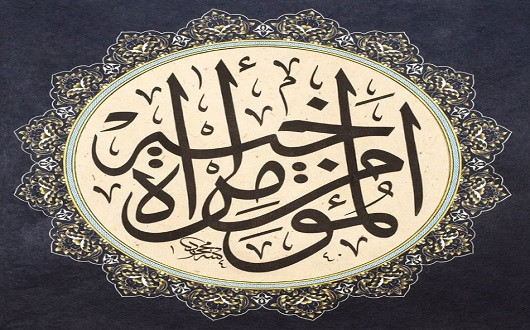 المؤمن مرآة أخيه